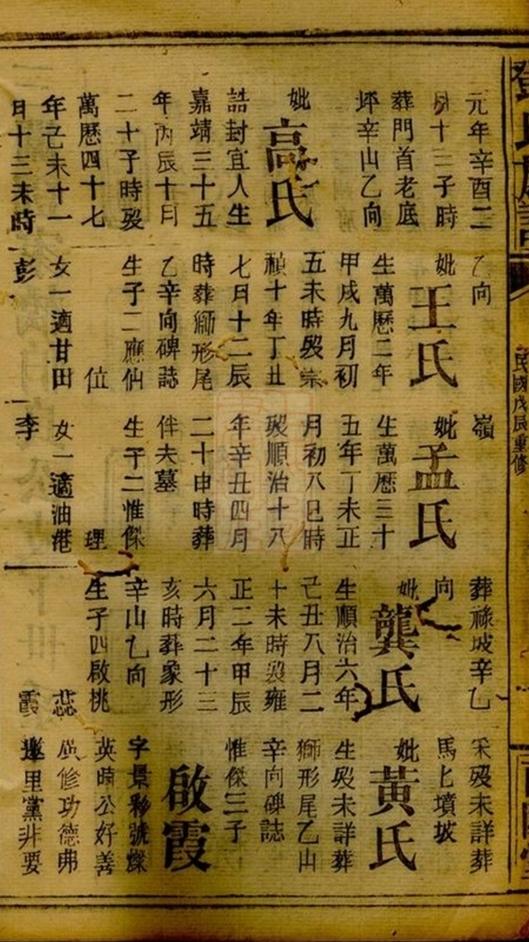 民國戊辰重修
元年辛酉二
月十三子時
葬門首老底
坪辛山乙向
妣高氏
誥封宜人生
嘉靖三十五
年丙辰十日
二十子時歿
萬歷四十七
年己未十一
日十三未時
乙向
妣王氏
生萬歷二年
甲戌九月初
五未時歿崇
禎十年丁丑
七月十二辰
時葬獅形尾
乙辛向碑誌
生子二應仙
位
女一適甘田
彭
嶺
妣孟氏
生萬歷三十
五年丁未正
月初八巳時
歿順治十八
年辛丑四月
二十申時葬
伴夫墓
生子二惟傑
理
女一適油港
李
葬祿坡辛乙
向
妣龔氏
生順治六年
己丑八月二
十未時歿雍
正二年甲辰
六月二十三
亥時葬象形
辛山乙向
生子四啟桃
蕊
霞
采歿未詳葬
馬匕墳坡
妣黃氏
生歿未詳葬
獅形尾乙山
辛向碑誌
惟傑三子
啟霞
字景彩號燦
英晴公好善
廣修功德弗
邀里黨非要